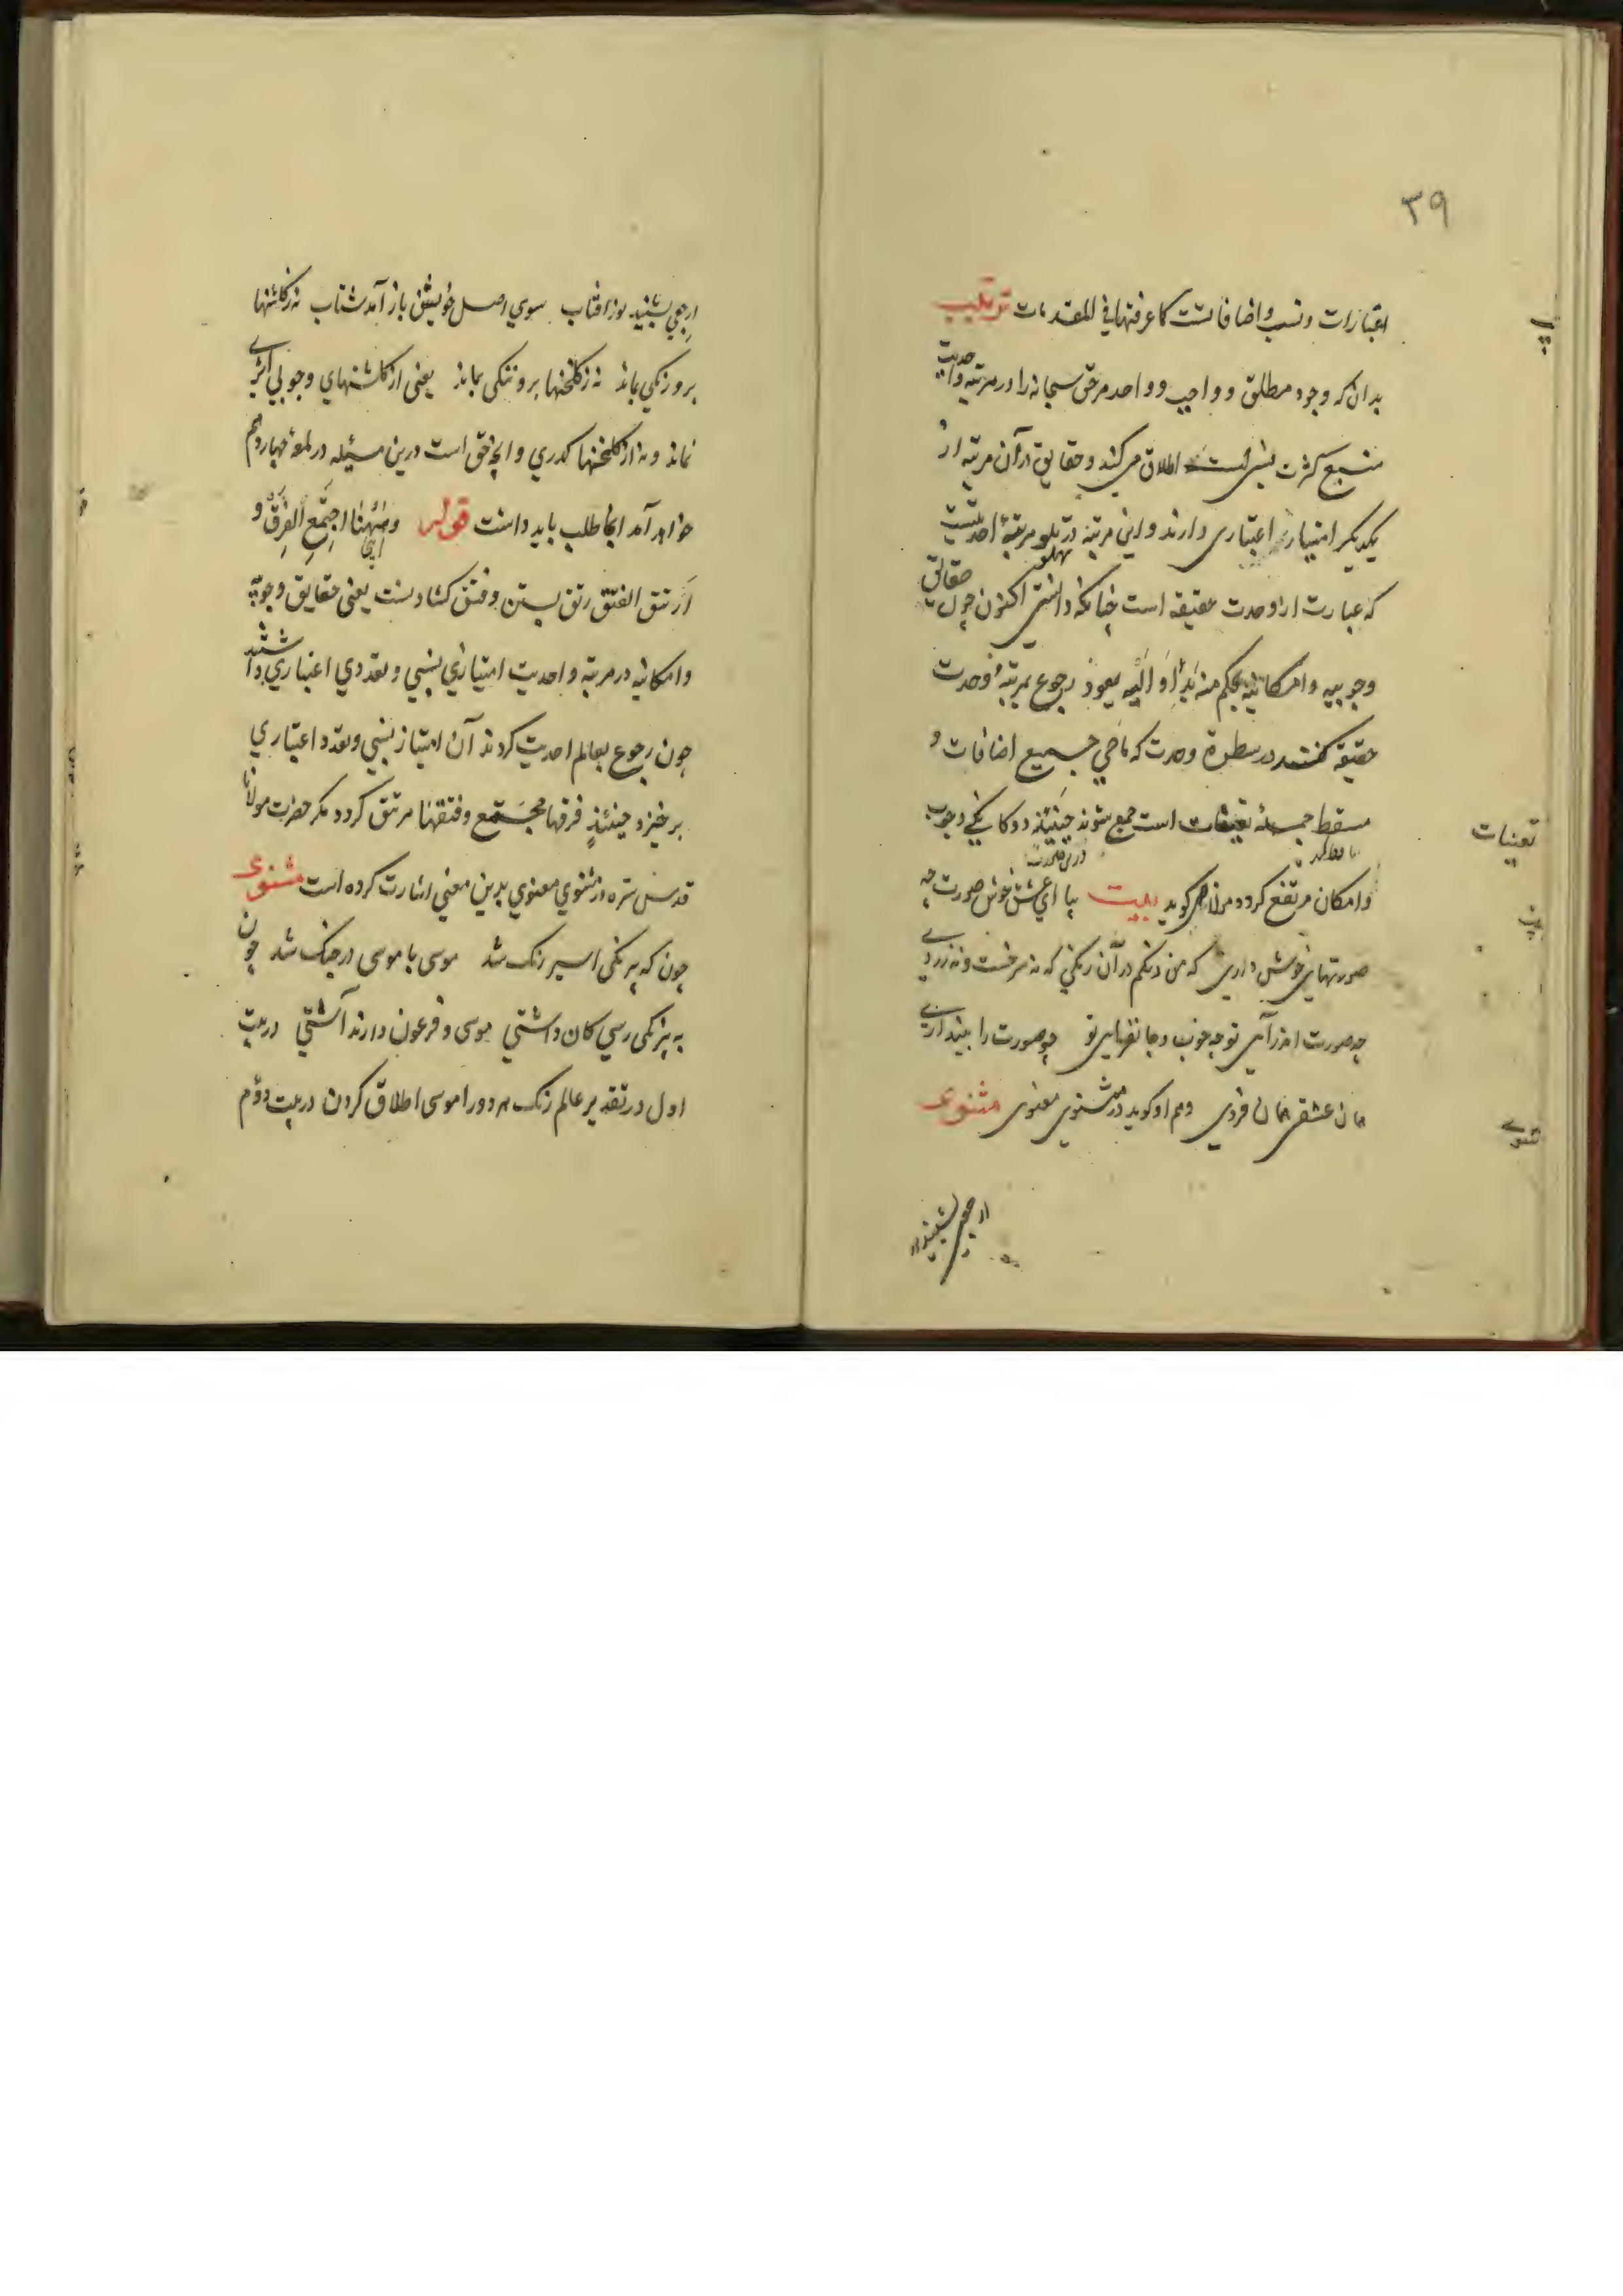 ۳۹
اعتبارات و نسب و اضافاتست کما عرفتها فی المقدمات
بدان که وجود مطلق و واجب و واحد مر حق سبحانه را در مرتبه واحدیت
منبع کثرت نسبی است اطلاق می کنند و حقایق در آن مرتبه از
یکدیکر امتیاز اعتباری دارند و این مرتبه در تلو مرتبهٔ احدیتست
پهلو
که عبارت از وحدت حقیقه است چنانکه دانستی اکنون چون حقایق
وجوبیه و امکانیه بحکم منه بدأ و الیه یعود رجوع بمرتبهٔ وحدت
حقیقه کنند در سطوة وحدت که ماحی جمیع اضافات و
مسقط جملهٔ تعینات است جمع شوند حینئذ دوکانکی وجوب
تعینات
و امکان مرتفع کردد مولانا می کوید بیت بیا ای عشق خوش صورت چه
صورتهای خوش داری که من دنکم در آن رنکی که نه سرخست و نه زردی
چه صورت اندر آیی تو چه خوب و جانفزایی تو چو صورت را بیندازی
همان عشقی همان فردی و هم او کوید در مثنوی معنوی مثنوی
ارجعی بشنید نور افتاب سوی اصل خویش باز آمد شتاب نه ز کلشنها
برو رنکی بماند نه ز کلخنها برو ننکی بماند یعنی از کلشنهای وجوبی اثری
نماند و نه از کلخنها کدری و انچه حق است درین مسئله در لمعهٔ چهاردهم
خواهد آمد انجا طلب باید داشت قوله وههنا اجتمع الفرق و
ارتتق الفتق رتق بستن و فتق کشادنست یعنی حقایق وجوبیه
و امکانیه در مرتبه واحدیت امتیازی نسبی و تعددی اعتباری داشتند
چون رجوع بعالم احدیت کردند آن امتیاز نسبی و تعدد اعتباری
برخیزد حینئذٍ فرقها مجتمع و فتقها مرتتق کردد مکر حضرت مولانا
قدس سره در مثنوی معنوی بدین معنی اشارت کرده است مثنوی
چون که بیرنکی اسیر رنک شد موسی با موسی در جنک شد چون
به بیرنکی رسی کان داشتی موسی و فرعون دارند آشتی در بیت
اول در تقدیر عالم رنک هر دو را موسی اطلاق کردن در بیت دوم
ارجعی بشنید نور